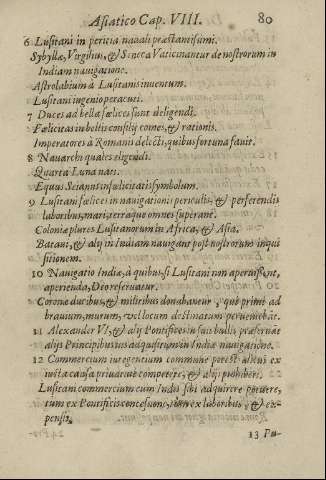 Asiatico Cap. VIII. 80
6 Lusitani in pericia navali præstantissimi.
Sybyllæ, Virgilius, & Seneca Vaticinantur de nostrorum in
Indiam navigatione.
Astrolabium à Lusitanis inventum.
Lusitani ingenio peracuti.
7 Duces ad bella fælices sunt deligendi.
Fælicitas in bellis consilij comes, & rationis.
Imperatores à Romanis delecti, quibus fortuna favit.
8 Nauarchi quales eligendi.
Quarta Luna nati.
Equus Seianus infælicitatis symbolum.
9 Lusitani fælices in navigationis periculis, & perferendis
laboribus, mari, terraque omnes superant.
Coloniæ plures Lusitanorum in Africa, & Asia.
Batavi, & alij in Indiam navigant post nostrorum inqui
sitionem.
10 Navigatio Indiæ, à quibus, si Lusitani non aperuissent,
aperienda, Deo reservatur.
Coronæ ducibus, & militibus donabantur, qui primi ad
bravium, murum, vel locum destinatum perveniebāt.
11 Alexander VI, & alij Pontifices in suis bullis præservāt
alijs Principibus ius adquisitum in Indiæ navigatione.
12 Commercium iure gentium commune potest alicui ex
iusta causa privative competere, & alijs prohiberi.
Lusitani commercium cum Indis sibi adquirere potuere,
tum ex Pontificis concessione, tum ex laboribus, & ex-
pensis.
13 Pu-